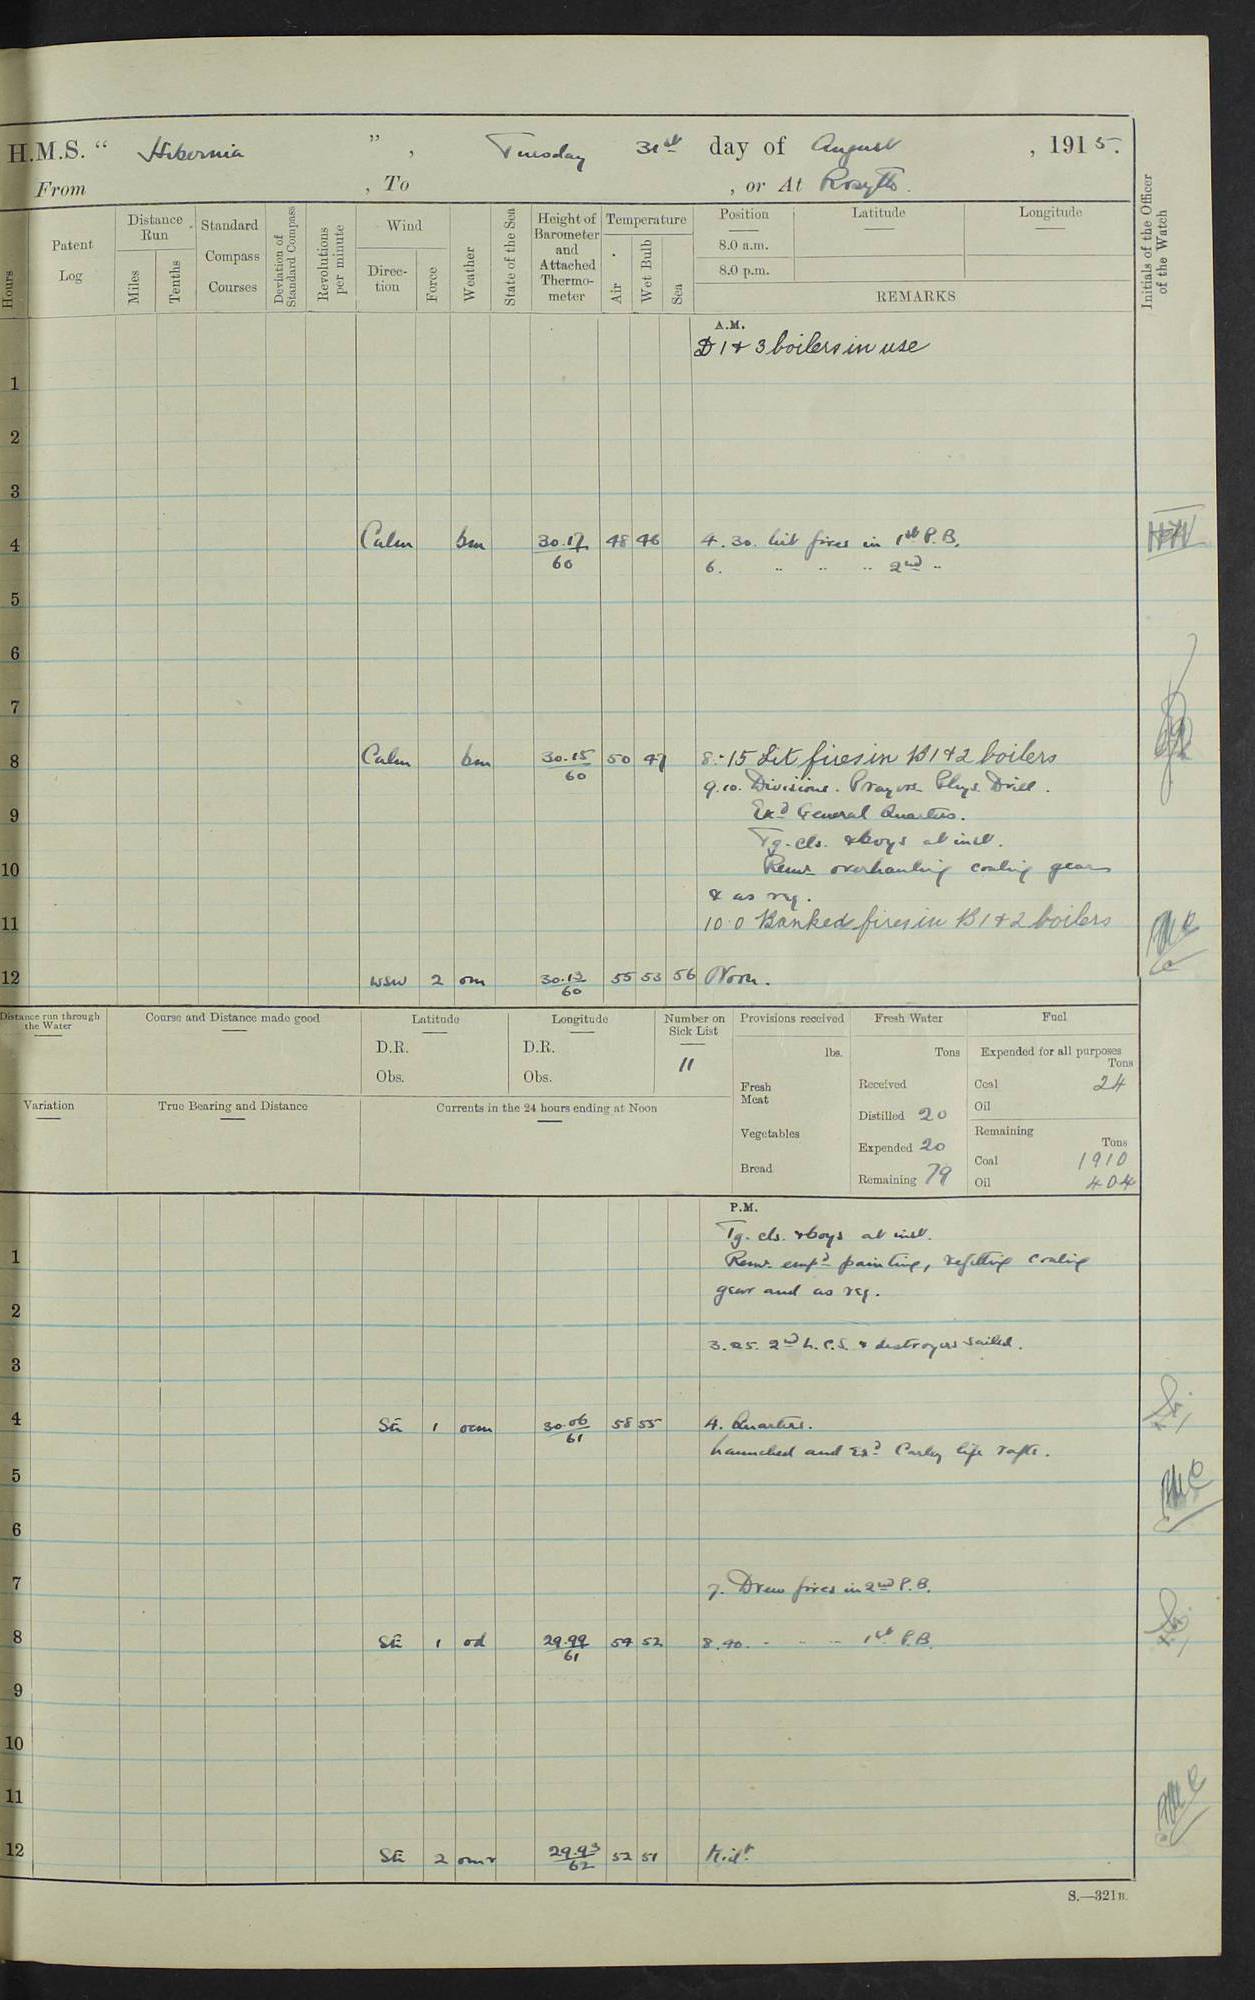 H.M.S. “ Hibernia ” , Tuesday 31st day of August , 1915.
From , To , or At Rosyth.
Hours
Patent Log
Distance Run
Miles
Tenths
Standard Compass Courses
Deviation of Standard Compass
Revolutions per minute
Wind
Direc-tion
Force
Weather
State of the Sea
Height of Barometer and Attached Thermo-meter
Temperature
Air
Wet Bulb
Sea
Position
8.0 a.m.
8.0 p.m.
Latitude
Longitude
REMARKS
Initials of the Officer of the Watch
A.M.
D 1 & 3 boilers in use
1
2
3
4 Calm bm 30.17/60 48 46 4.30. Lit fires in 1st P.B.
6. " " " 2nd "
5
6
7
8 Calm bm 30.15/60 50 47 8.15 Lit fires in B 1 & 2 boilers
9.10. Divisions. Prayers. Phys. Drill.
Exd General Quarters.
9
Tg. cls. & boys at inst.
10 Remr overhauling coaling gear
& as req.
11 10.0 Banked fires in B 1 & 2 boilers
12 WSW 2 om 30.13/60 55 53 56 Noon.
Distance run through the Water
Course and Distance made good
Latitude
D.R.
Obs.
Longitude
D.R.
Obs.
Number on Sick List
11
Provisions received
lbs.
Fresh Meat
Vegetables
Bread
Fresh Water
Tons
Received
Distilled 20
Expended 20
Remaining 79
Fuel
Expended for all purposes
Tons
Coal 24
Oil
Remaining
Tons
Coal 1910
Oil 404
Variation
True Bearing and Distance
Currents in the 24 hours ending at Noon
P.M.
Tg. cls. & boys at inst.
1 Remr. empd painting, refitting coaling
gear and as req.
2
3.25. 2nd L.C.S. & destroyers sailed.
3
4 SE 1 ocm 30.06/61 58 55 4. Quarters.
Launched and Exd Carley life rafts.
5
6
7 7. Drew fires in 2nd P.B.
8 SE 1 od 29.99/61 54 52 8.40. " " " 1st P.B.
9
10
11
12 SE 2 omr 29.93/62 52 51 Midt.
S.—321B.